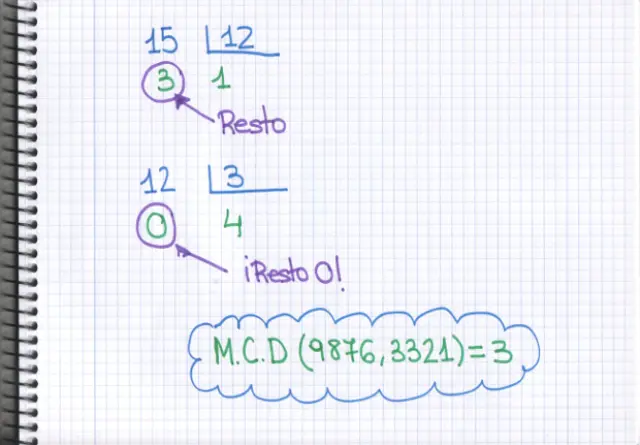 15 12
3 1
Resto
12 3
0 4
¡Resto 0!
M.C.D (9876,3321)=3